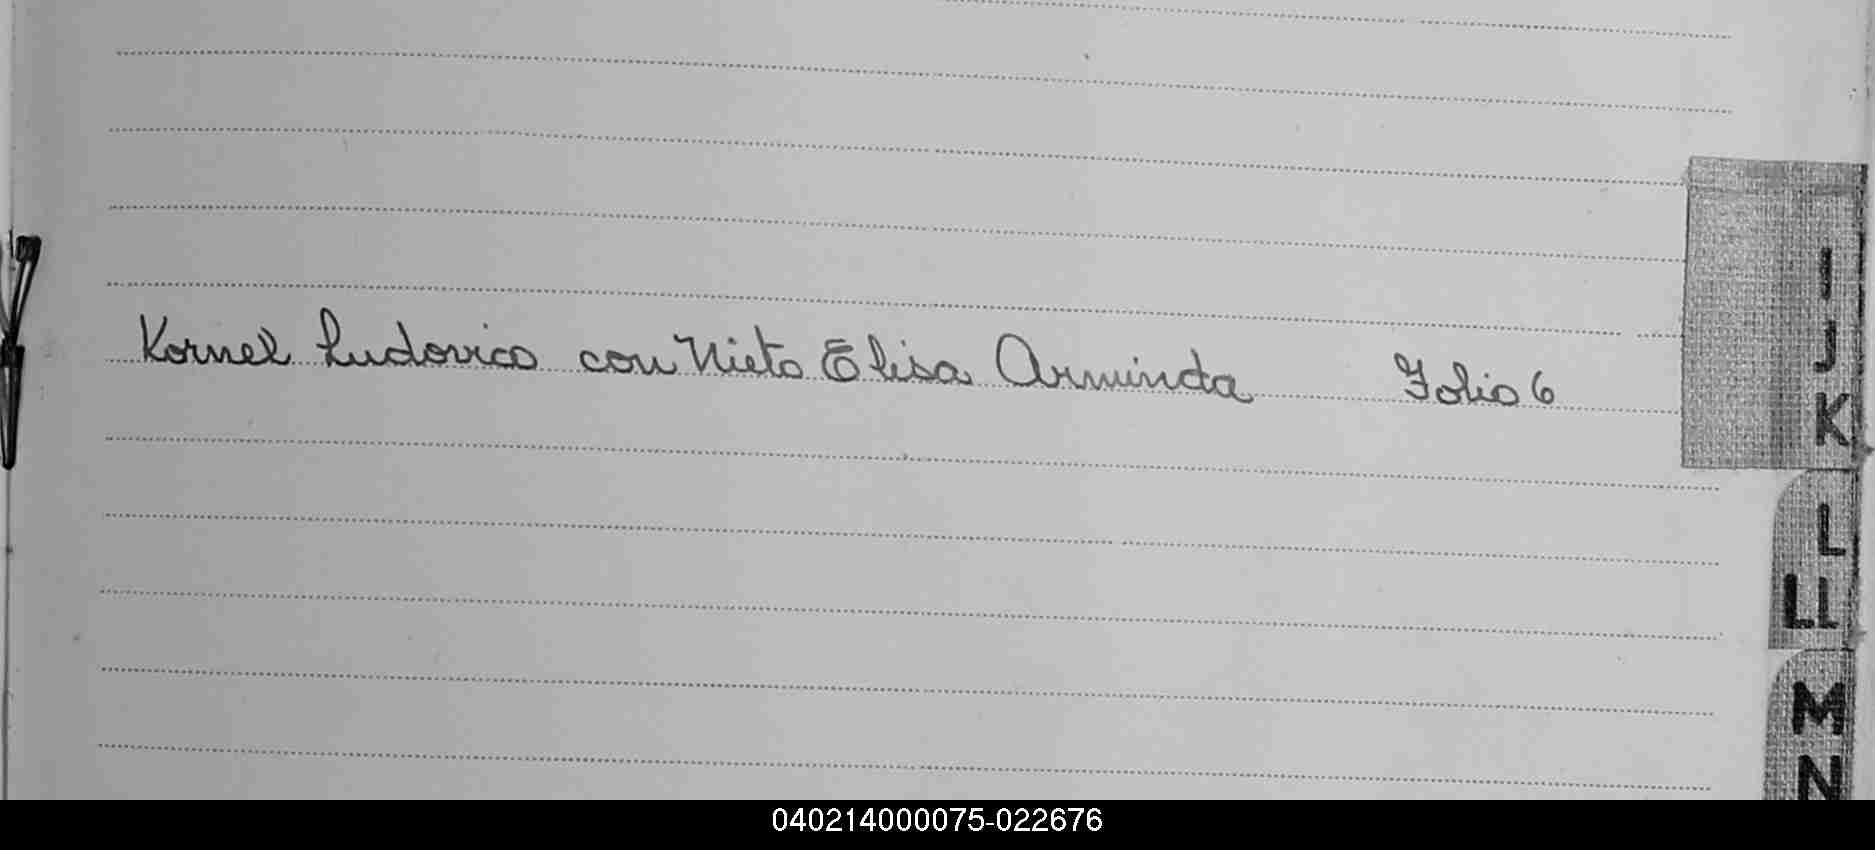 Kornel Ludovico con Nieto Elisa Arminda Folio 6
I
J
K
L
LL
M
N
040214000075-022676